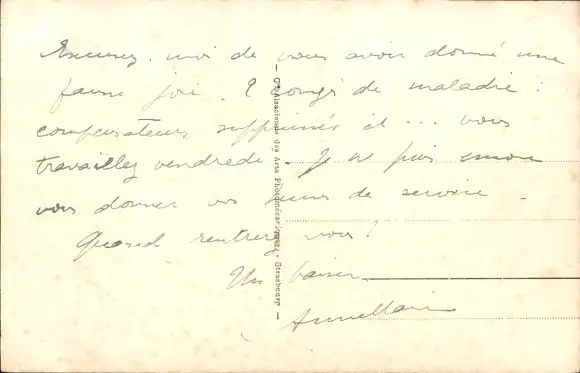 Excusez-moi de vous avoir donné une
fausse joie. 2 congés de maladie :
compensateurs supprimés et ... vous
travaillez vendredi. Je ne puis encore
vous donner vos heures de service.
Quand rentrerez vous ?
Un baiser
— Cie Alsacienne des Arts Photomécaniques - Strasbourg —